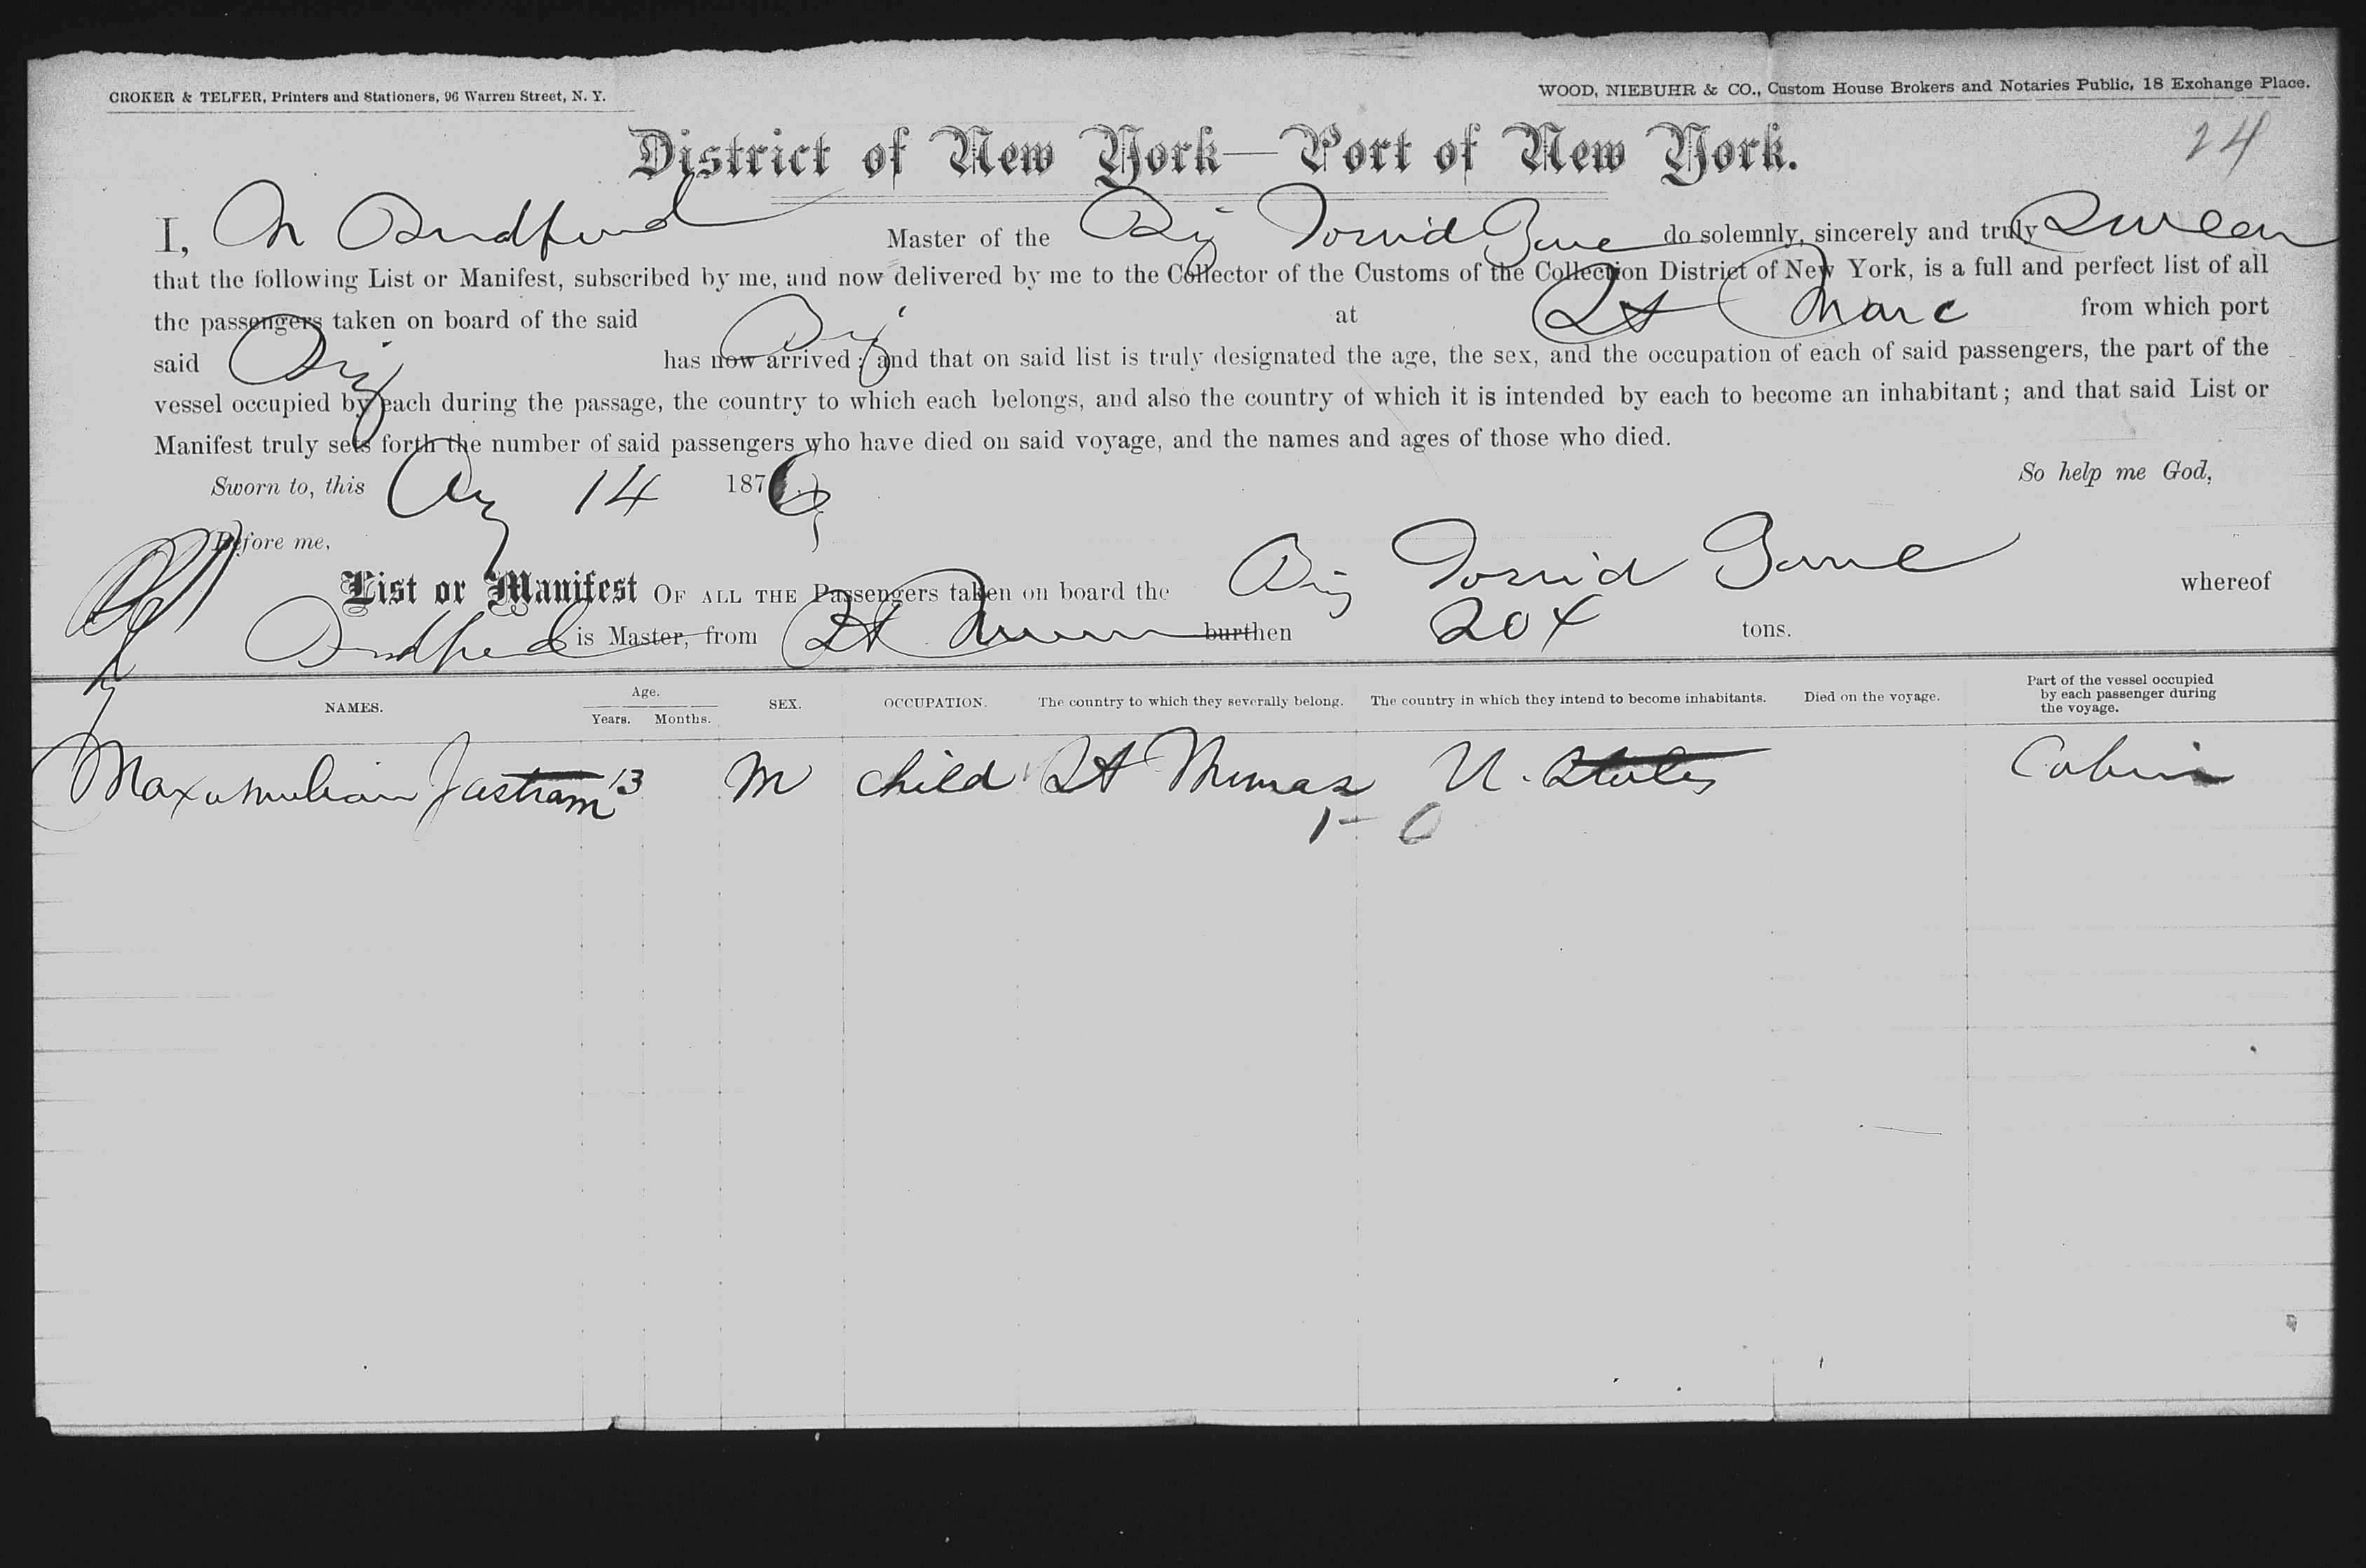 CROKER & TELFER, Printers and Stationers, 96 Warren Street, N. Y.
WOOD, NIEBUHR & CO., Custom House Brokers and Notaries Public, 18 Exchange Place.
24
District of New York—Port of New York.
I, Master of the Brig Torrid Zone do solemnly, sincerely and truly Swear
that the following List or Manifest, subscribed by me, and now delivered by me to the Collector of the Customs of the Collection District of New York, is a full and perfect list of all
the passengers taken on board of the said Brig at St Marc from which port
said Brig has now arrived; and that on said list is truly designated the age, the sex, and the occupation of each of said passengers, the part of the
vessel occupied by each during the passage, the country to which each belongs, and also the country of which it is intended by each to become an inhabitant; and that said List or
Manifest truly sets forth the number of said passengers who have died on said voyage, and the names and ages of those who died.
Sworn to, this Aug 14 1876
So help me God,
Before me,
List or Manifest OF ALL THE Passengers taken on board the Brig Torrid Zone whereof
is Master, from St burthen 204 tons.
NAMES. Age. Years. Months. SEX. OCCUPATION. The country to which they severally belong. The country in which they intend to become inhabitants. Died on the voyage. Part of the vessel occupied by each passenger during the voyage.
Jastram 13 M child St Thomas U. States Cabin
1 - 0